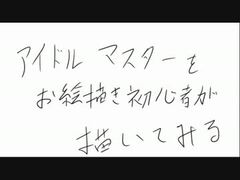 アイドル マスターを
お絵描き初心者が
描いてみる